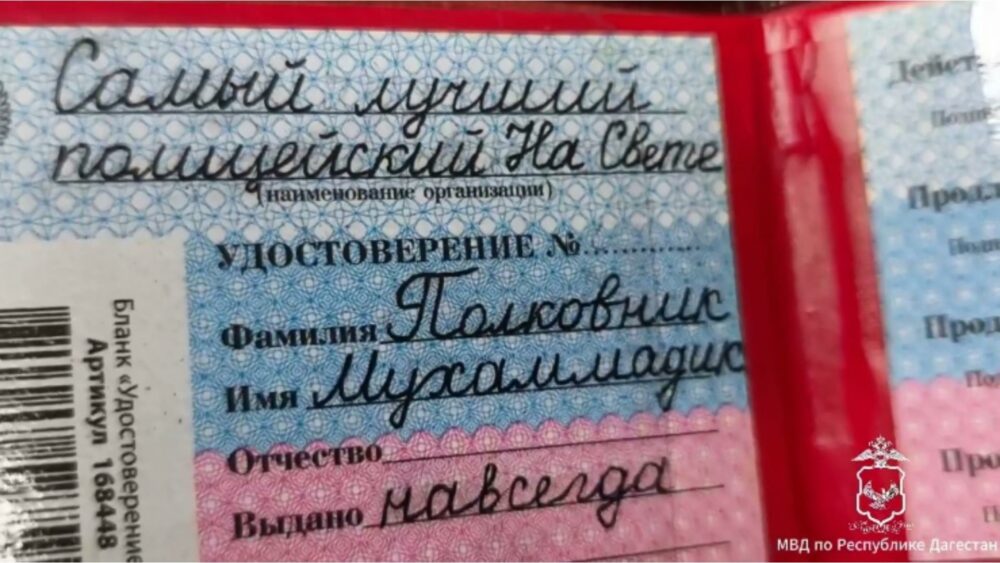 Самый лучший
полицейский На Свете
(наименование организации)
УДОСТОВЕРЕНИЕ №
Фамилия Полковник
Имя Мухаммадик
Отчество
Выдано навсегда
Бланк «Удостоверение
Артикул 168448
Дейст
Продл
Прод
Про
МВД по Республике Дагестан